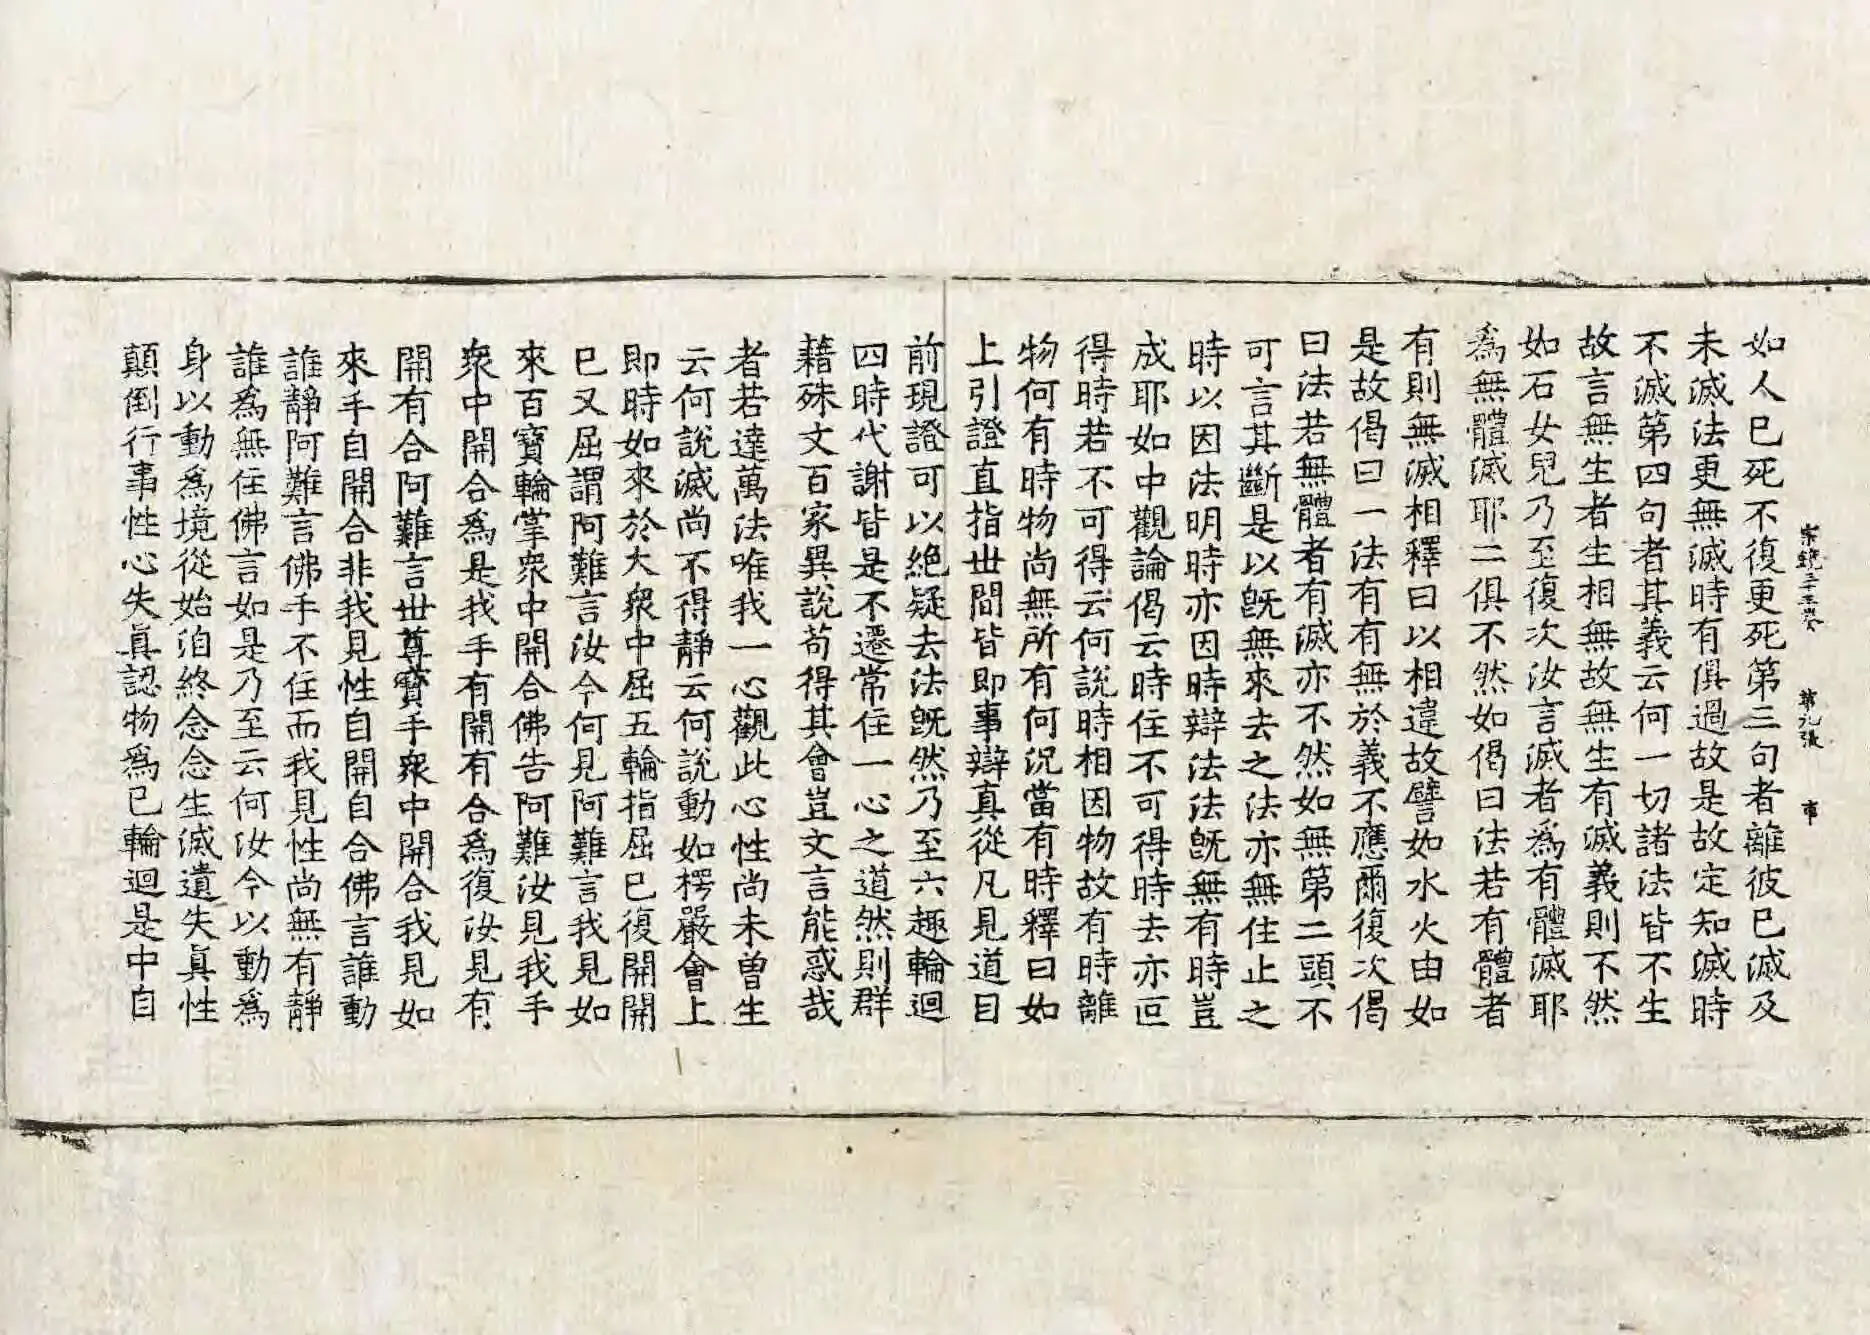 宗鏡三十三卷 第九張 市
如人已死不復更死第三句者離彼已滅及
未滅法更無滅時有俱過故是故定知滅時
不滅第四句者其義云何一切諸法皆不生
故言無生者生相無故無生有滅義則不然
如石女兒乃至復次汝言滅者爲有體滅耶
爲無體滅耶二俱不然如偈曰法若有體者
有則無滅相釋曰以相違故譬如水火由如
是故偈曰一法有有無於義不應爾復次偈
曰法若無體者有滅亦不然如無第二頭不
可言其斷是以旣無來去之法亦無住止之
時以因法明時亦因時辯法法旣無有時豈
成耶如中觀論偈云時住不可得時去亦叵
得時若不可得云何說時相因物故有時離
物何有時物尚無所有何況當有時釋曰如
上引證直指世間皆即事辯真從凡見道目
前現證可以絶疑去法旣然乃至六趣輪迴
四時代謝皆是不遷常住一心之道然則群
藉殊文百家異說苟得其會豈文言能惑哉
者若達萬法唯我一心觀此心性尚未曾生
云何說滅尚不得靜云何說動如楞嚴會上
即時如來於大衆中屈五輪指屈已復開開
已又屈謂阿難言汝今何見阿難言我見如
來百寶輪掌衆中開合佛告阿難汝見我手
衆中開合爲是我手有開有合爲復汝見有
開有合阿難言世尊寶手衆中開合我見如
來手自開合非我見性自開自合佛言誰動
誰靜阿難言佛手不住而我見性尚無有靜
誰爲無住佛言如是乃至云何汝今以動爲
身以動爲境從始洎終念念生滅遺失真性
顛倒行事性心失真認物爲已輪迴是中自